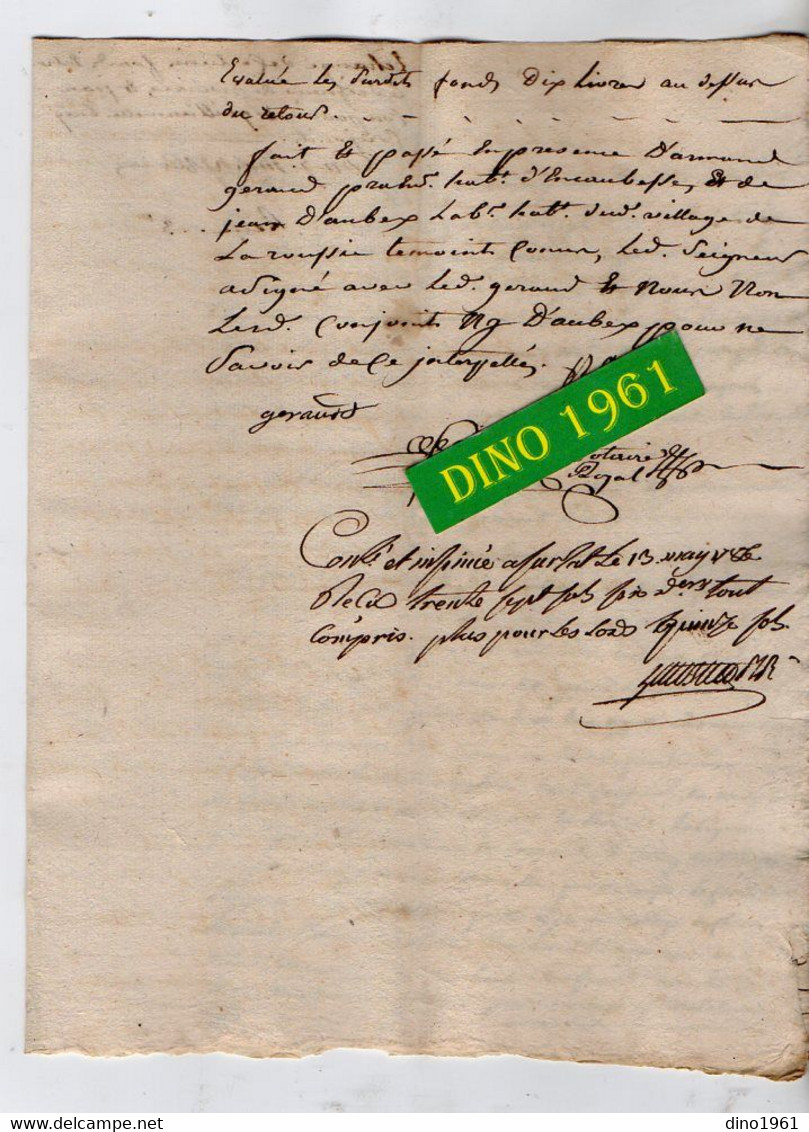 Evalués les susdits fonds Dix Livres au dessus
du retour.
fait et passé En presence D'armand
geraud prahn. habt. d'Encaubesse, et de
jean D'aubex Labr. habt. dud. village de
La roussie temoints Conus, Led. Seigneur
a signé avec Led. geraud et Nous Non
Lesd. Conjoints Ny D'aubex pour ne
Savoir de Ce jnterpellés.
geraud
DINO 1961
Notaire
Royal
Conlé et insinué a sarlat Le 13 may
Reçu trente sept sols six ders tout
Compris. plus pour les lods quinze sols
dino1961